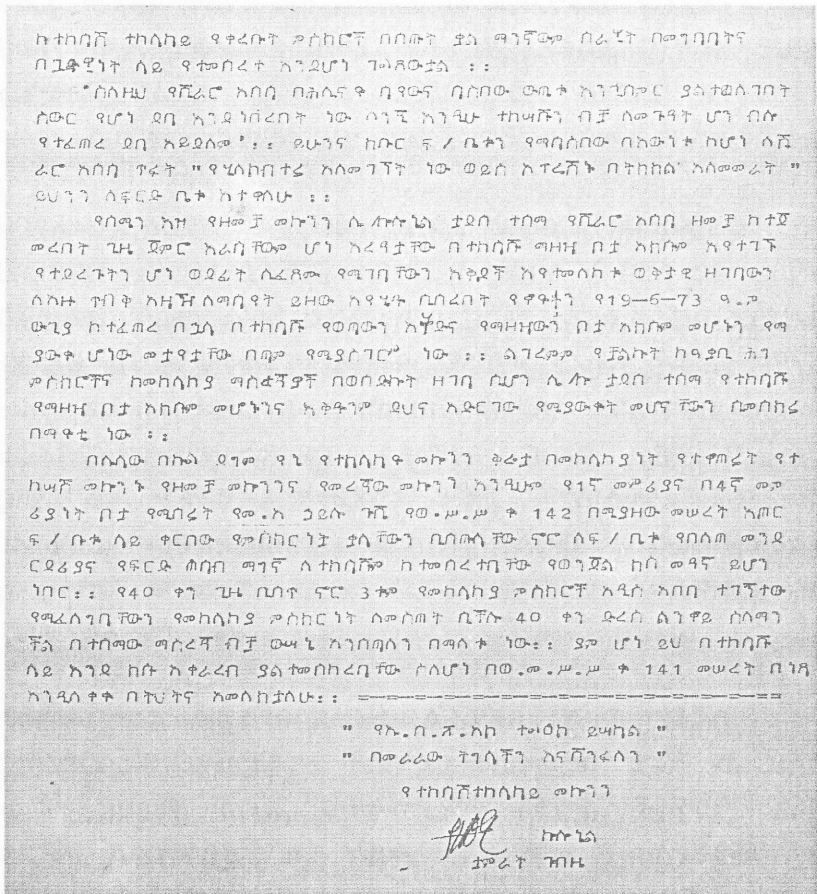 ከተከሳሽ ተከላካይ የቀረቡት ምስክሮች በሰጡት ቃል ማንኛውም በራሺት በመግባባትና
በጓዳዊነት ላይ የተመሰረተ እንደሆነ ገልጸውታል ፡፡
"ስለዚህ የሺራሮ አባባ በሕሊናቀ ባየውና ባሰበው ውጤቱ እንዲህም ያልተፈለገበት
ስውር የሆነ ደባ እንደነበረበት ነው ወንጂ እንዲሁ ተከሣሹን ብቻ ለመጉዳት ሆን ብሎ
የተፈጠረ ደባ አይደለም"፡፡ ይሁንና ክቡር ፍ/ቤቱን የማሳስበው በእውነቱ ከሆነ ለሺ
ራሮ አባባ ጥፋት "የሄሊኮብተሬ አለመገኘት ነው ወይስ ኦፕሬሽኑ በትክክል አለመመራት "
ይህንን ለፍርድ ቤቱ እተዋለሁ ፡፡
የሰሜን እዝ የዘመቻ መኮንን ሌ/ኮሎኔል ታደሰ ተሰማ የሺራሮ አባባ ዘመቻ ከተጀ
መረበት ጊዜ ጀምሮ እራሳቸውም ሆነ እረዳታቸው በተከሳሹ ማዘዣ ቦታ አክሱም እየተገኙ
የተደረጉትን ሆነ ወደፊት ሊፈጸሙ የሚገባቸውን እቅዶች እየተመለከቱ ወቅታዊ ዘገባውን
ለእዙ ጥብቅ እዣዥ ለማሳየት ይዘው እየሄዱ ሲሰረበት የዋዕዩን የ19—6—73 ዓ.ም
ውጊያ ከተፈጠረ በኋላ በተከሳሹ የወጣውን እቅድና የማዘዣውን ቦታ አክሱም መሆኑን የማ
ያውቀ ሆነው መታየታቸው በጣም የሚያስገርም ነው ፡፡ ልገረምም የቻልኩት ከዓቃቤ ሕግ
ምስክሮችና ከመከላከያ ማስረጃዎች በወሰድኩት ዘገባ ሲሆን ሌ/ኮ ታደሰ ተሰማ የተከሳሹ
የማዘዣ ቦታ አክሱም መሆኑንና እቅዱንም ደህና አድርገው የሚያውቁት መሆናቸውን በመስከሬ
በማዋቄ ነው ፡፡
በሌላው በኩል ደግሞ የኔ የተከላካዩ መኮንን ቅሬታ በመከላከያነት የተቆጠሬት የተ
ከሣሽ መኮንኑ የዘመቻ መኮንንና የመረጃው መኮንን እንዲሁም የ1ኛ መሥሪያና በ4ኛ መም
ሪያነት ቦታ የሚሰሬት የመ.አ ኃይሉ ጉሼ የወ.ሥ.ሥ ቀ 142 በሚያዘው መሠረት አጠር
ፍ/ቤቱ ላይ ቀርበው የምስክርነት ቃላቸውን ቢሰጡላቸው ኖሮ ለፍ/ቤቱ የበለጠ መንደ
ርደሪያና የፍርድ ሐሳብ ማገኛ ለተከሳሹም ከተመሰረተባቸው የወንጀል ክስ መዳኛ ይሆን
ነበር፡፡ የ40 ቀን ጊዜ ቢሰጥ ኖሮ 3ቱም የመከላከያ ምስክሮች አዲስ አበባ ተገኝተው
የሚፈለገባቸውን የመከላከያ ምስክርነት ለመስጠት ሲችሉ 40 ቀን ድረስ ልንቆይ ስለማን
ችል በተሰማው ማስረጃ ብቻ ውሣኔ እንሰጣለን በማለቱ ነው፡፡ ያም ሆነ ይህ በተከሳሹ
ላይ እንደ ክሱ አቀራረብ ያልተመሰከረባቸው ስለሆነ በወ.መ.ሥ.ሥ ቀ 141 መሠረት በነጻ
እንዲለቀቁ በትህትና አመለክታለሁ፡፡ =—=—=—=—=—=—=—=—=—=—=—=—=—=—=
" የኢ.ሰ.ፓ.አኮ ተልዕኮ ይሣካል "
" በመራራው ትግላችን እናሸንፋለን "
የተከሳሽ ተከላካይ መኮንን
ኮሎኔል
ታምራት